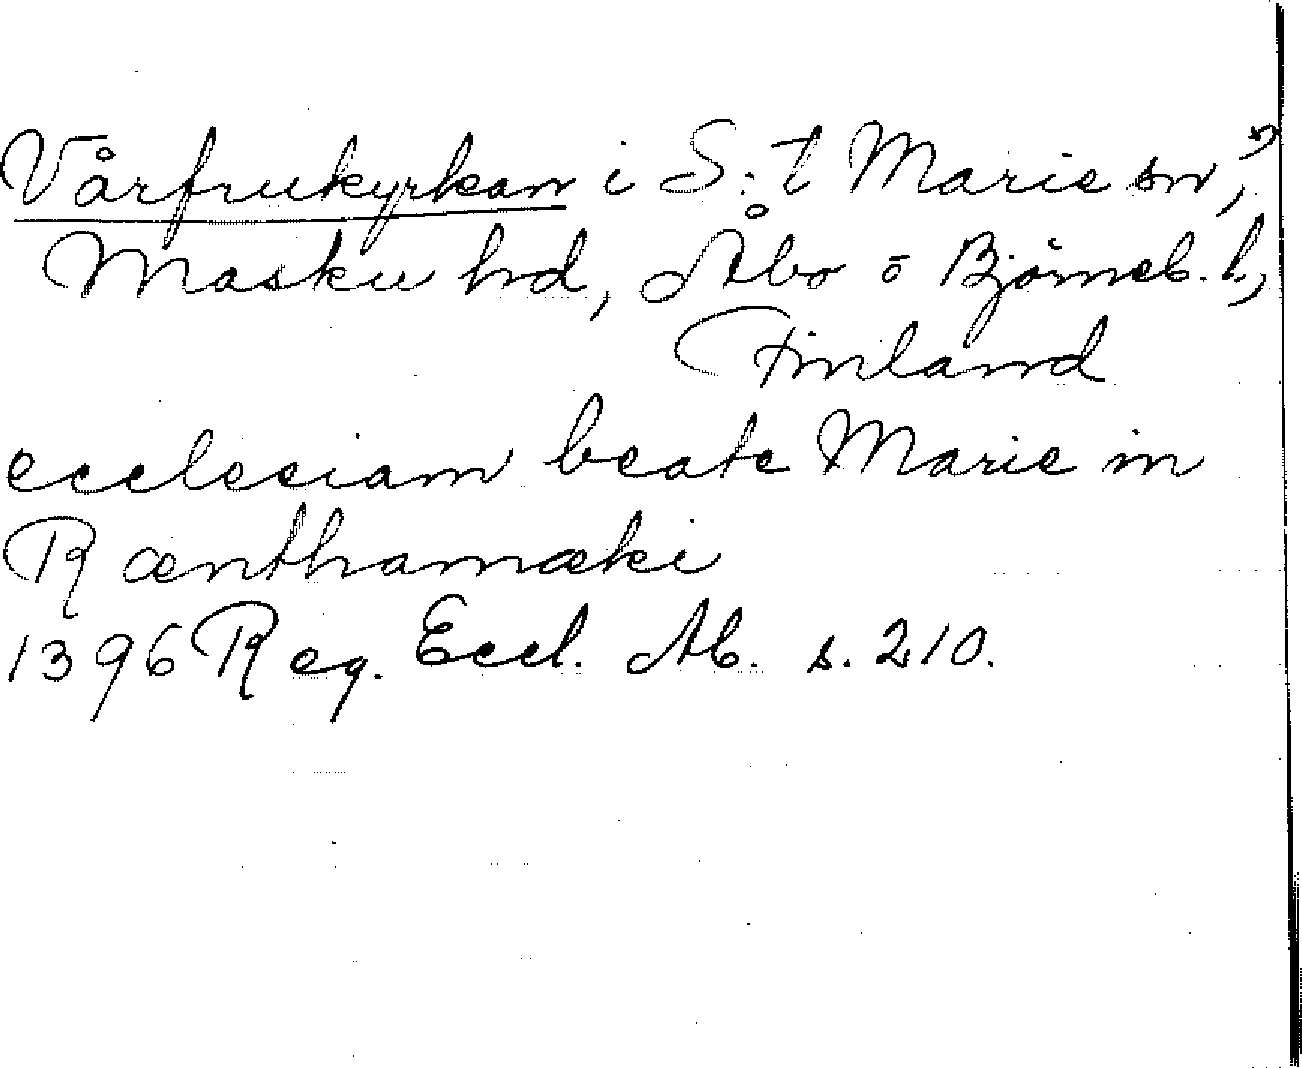 Vårfrukyrkan i S:t Marie sn,
Masku hd, Åbo o Björneb. l,
Finland
ecclesiam beate Marie in
Rænthamæki
1396 Reg. Eccl. Ab. s. 210.